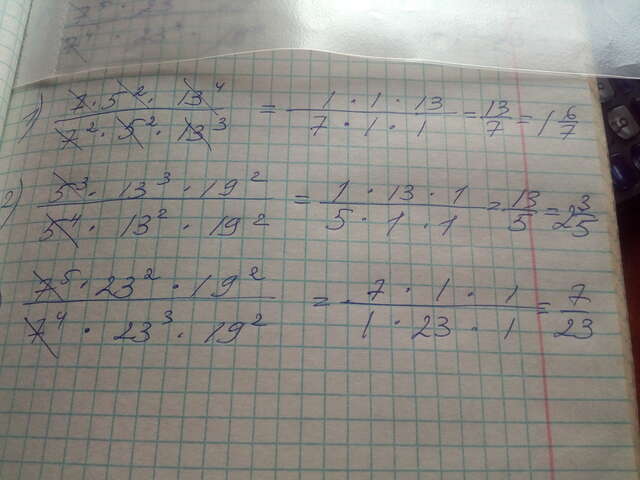 1) 7·5²·13⁴ / 7²·5²·13³ = 1·1·13 / 7·1·1 = 13/7 = 1 6/7
2) 5³·13³·19² / 5⁴·13²·19² = 1·13·1 / 5·1·1 = 13/5 = 2 3/5
) 7⁵·23²·19² / 7⁴·23³·19² = 7·1·1 / 1·23·1 = 7/23